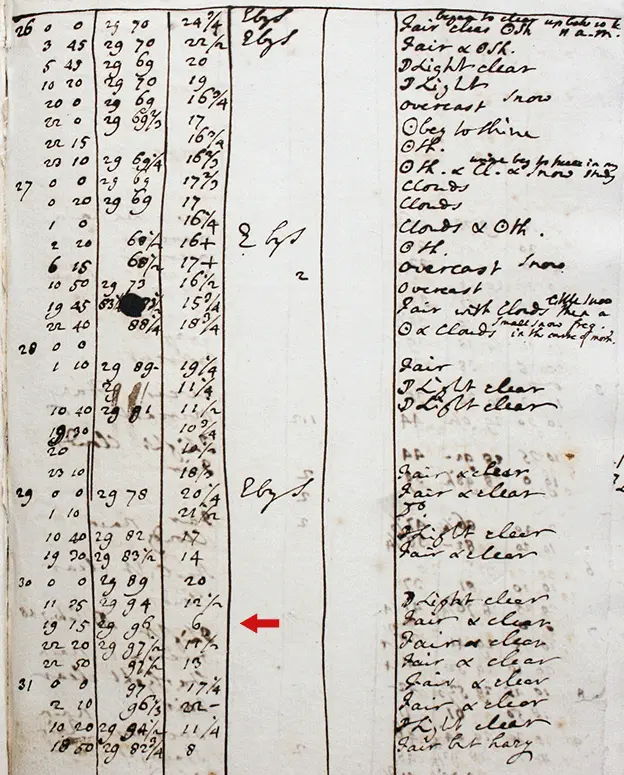 26 0 0 29 70 24 3/4 E by S Fair clear ☉sh began to clear up
3 45 29 70 22 1/2 E by S Fair & ☉sh.
5 45 29 69 20 ☽ Light clear
10 20 29 70 19 ☽ Light
20 0 29 69 16 3/4 overcast snow
22 0 29 69 2/3 17 ☉ beg to shine
22 15 16 3/4 ☉sh.
23 10 29 69 1/4 16 2/3 ☉sh. & Cl. & snow study
27 0 0 29 69 17 2/3 Clouds
0 20 29 69 17 Clouds
1 0 16 3/4 Clouds & ☉sh.
2 20 68 1/2 16+ E by S ☉sh.
6 15 68 1/2 17+ overcast snow
10 50 29 73 16 1/2 2 overcast
19 45 15 3/4 Fair with Clouds
22 40 88 1/4 18 3/4 ☉ & Clouds small snow
28 0 0
1 10 29 89- 19 1/4 Fair
29 11 1/4 ☽ Light clear
10 40 29 91 11 1/2 ☽ Light clear
19 30 10 3/4
20 10 1/2
23 10 18 1/2 Fair & clear
29 0 0 29 78 20 1/4 E by S Fair & clear
1 10 21 1/2 Do.
10 40 29 82 17 ☽ Light clear
19 30 29 83 1/2 14 Fair & clear
30 0 0 29 89 20
11 25 29 94 12 1/2 ☽ Light clear
19 15 29 96 6 Fair & clear
22 20 29 97 1/2 11 1/2 Fair & clear
22 50 97 1/2 13 Fair & clear
31 0 0 97 17 1/4 Fair & clear
2 10 96 1/3 22- Fair & clear
10 20 29 94 1/2 11 1/4 ☽ Light clear
18 50 29 82 3/4 8 Fair but hazy